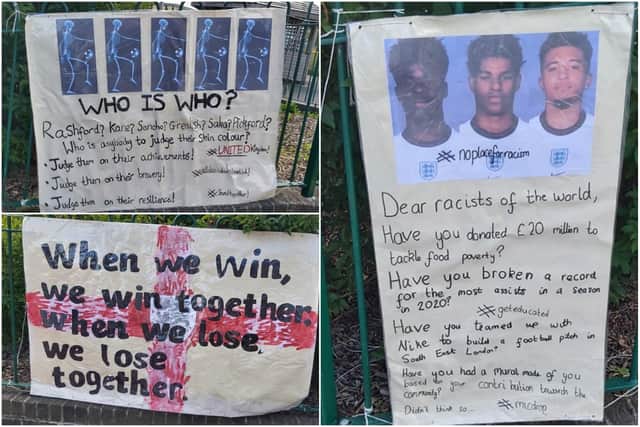 WHO IS WHO?
Rashford? Kane? Sancho? Grealish? Saka? Pickford?
Who is anybody to judge their skin colour?
• Judge them on their achievements! #UNITED Kingdom!
• Judge them on their bravery!
• Judge them on their resilience!
When we win,
we win together.
when we lose,
we lose
together.
#noplaceforracism
Dear racists of the world,
Have you donated £20 million to
tackle food poverty?
Have you broken a record
for the most assists in a season
in 2020? #geteducated
Have you teamed up with
Nike to build a football pitch in
South East London?
Have you had a mural made of you
based on your contribution towards the
community?
Didn't think so... #micdrop